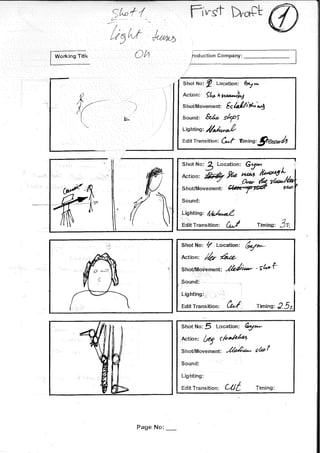 Shot 1
First Draft
1
Light turns
on
Working Title
Production Company:
Shot No: Location: Gym
Action: She
Shot/Movement: Establishing
Sound: Echo steps
Lighting: Natural
Edit Transition: Cut Timing: 5 seconds
Shot No: 3 Location: Gym
Action: She runs through
Over the shoulder
Shot/Movement: shot
Sound:
Lighting: Natural
Edit Transition: Cut Timing: 3s
Shot No: 4 Location: Gym
Action: Her face
Shot/Movement: Medium - shot
Sound:
Lighting:
Edit Transition: Cut Timing: 2.5s
Shot No: 5 Location: Gym
Action: Leg stretches
Shot/Movement: Medium shot
Sound:
Lighting:
Edit Transition: Cut Timing:
Page No: